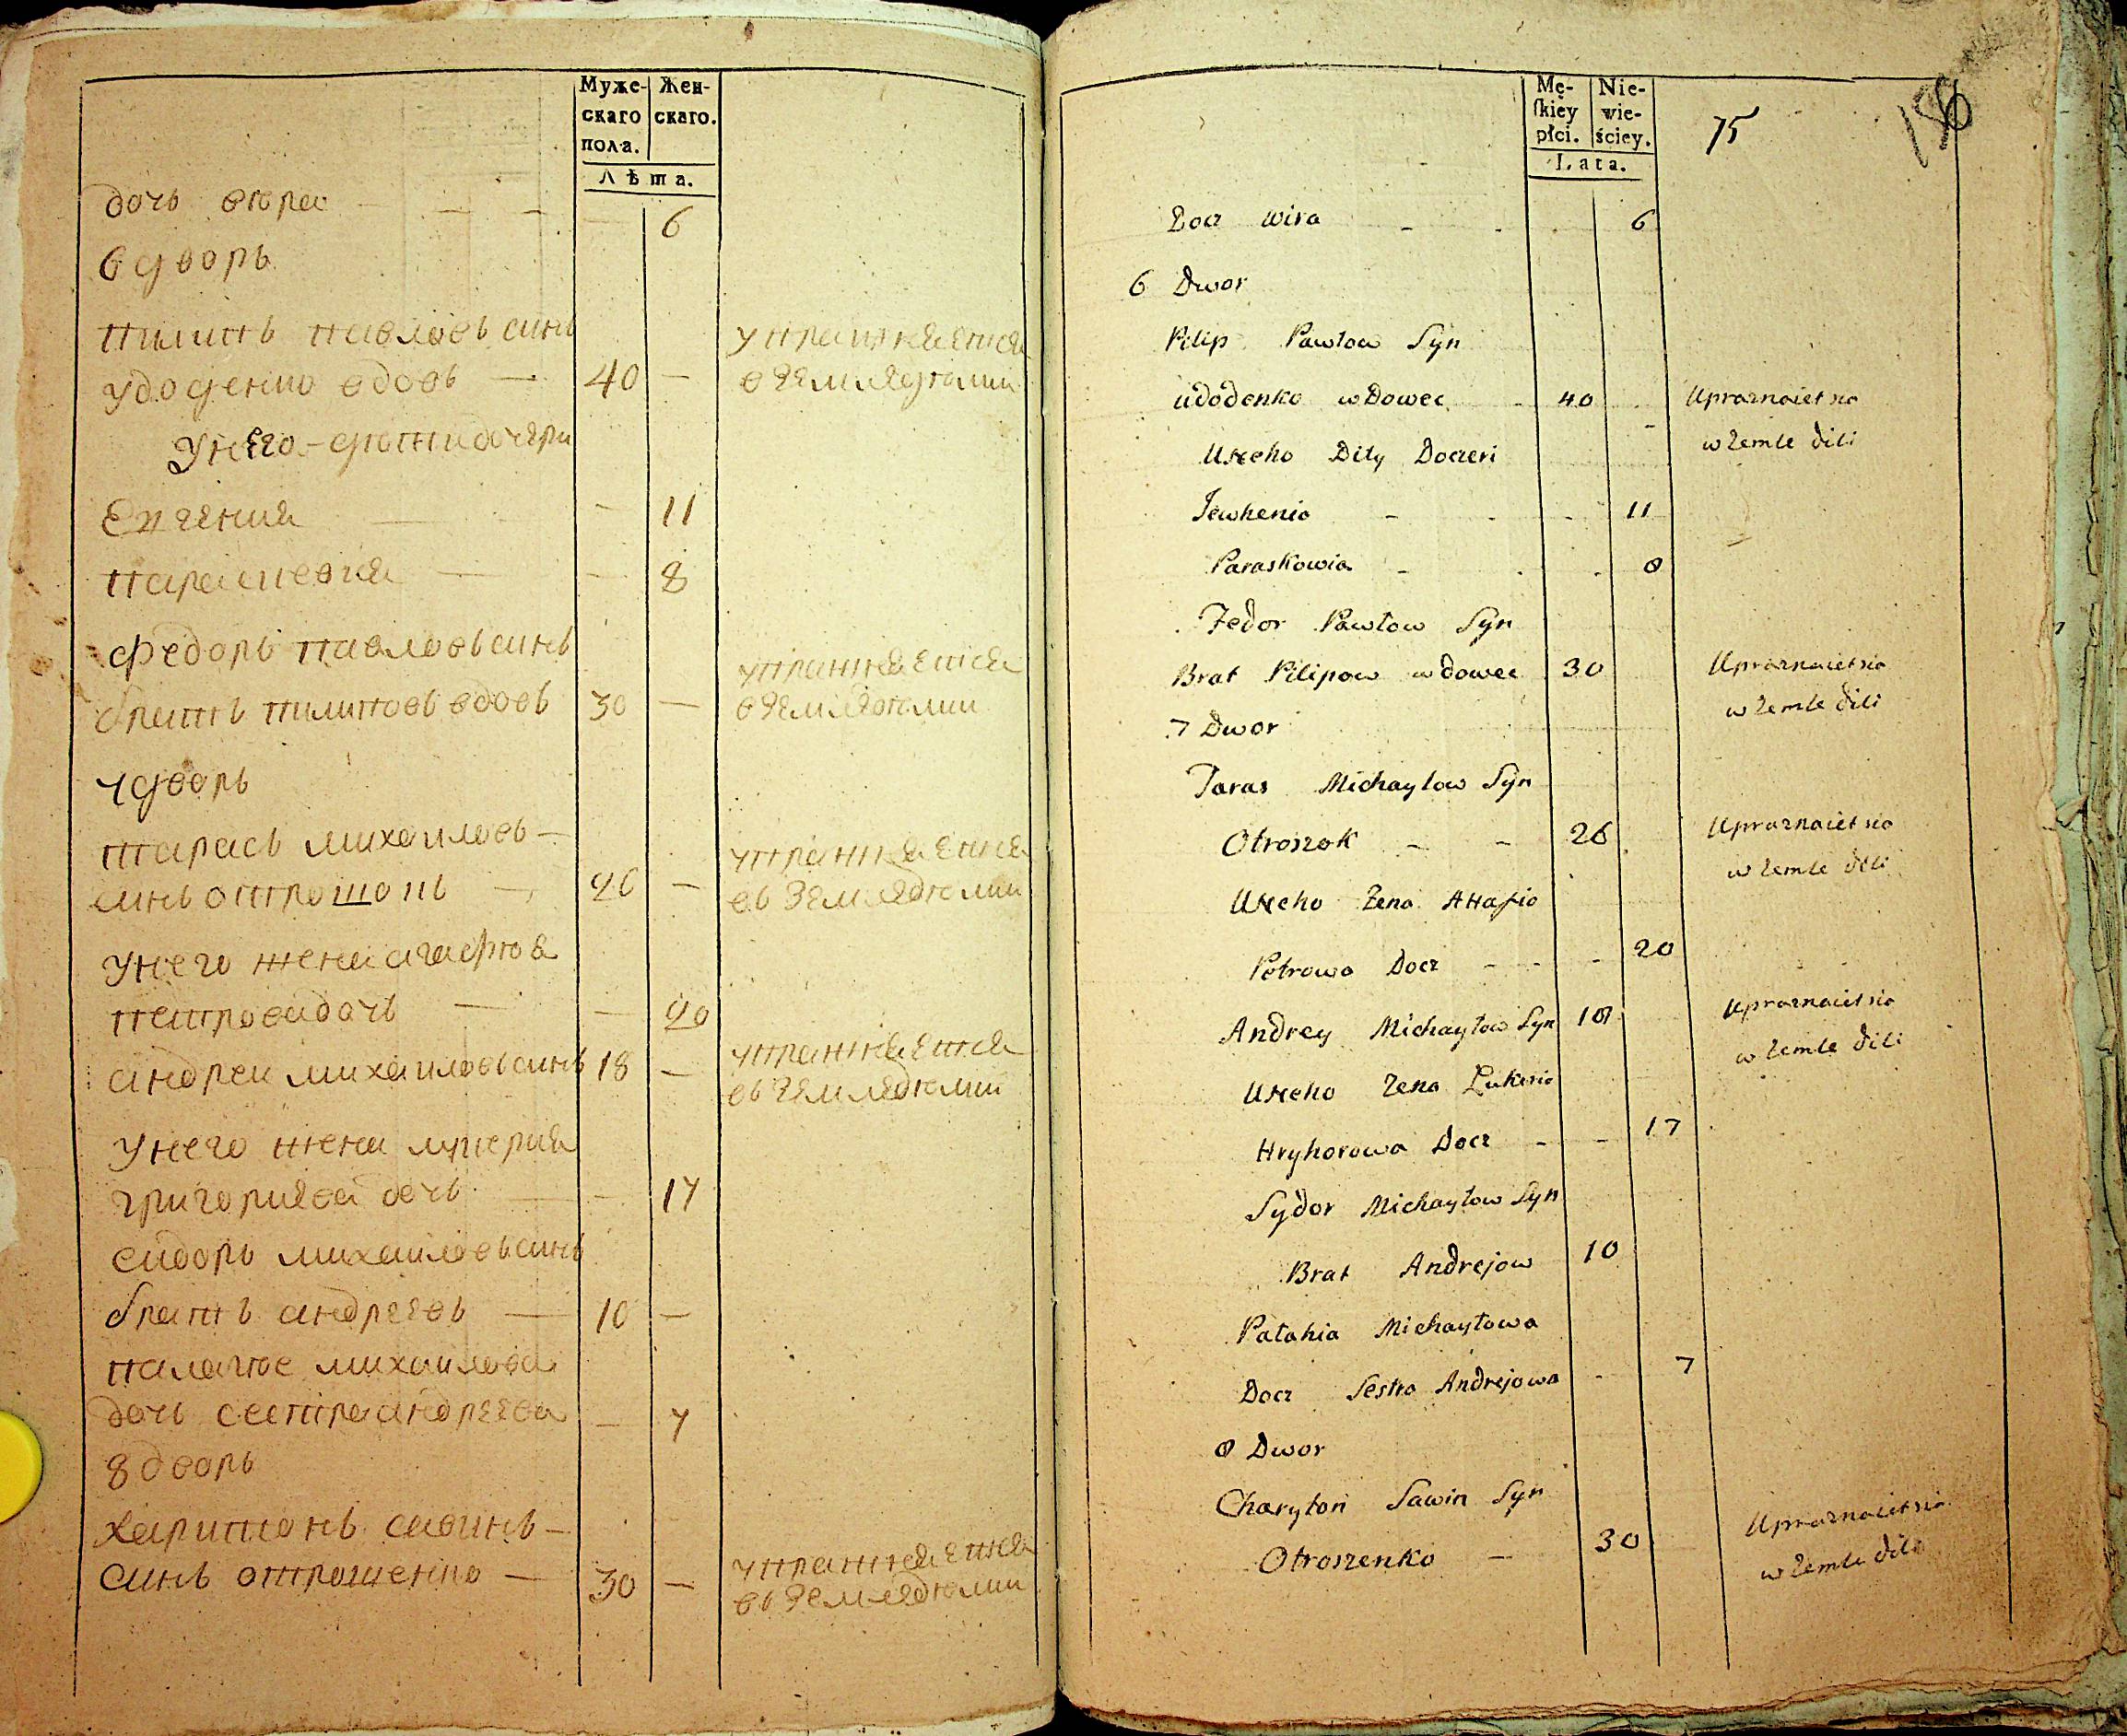 Муже-
скаго
пола.
Жен-
скаго.
Лѣта.
дочь вѣра — — — — 6
6 дворъ
пилипъ павловъ синъ
удоденко вдовъ — 40 —
упражняется
в земледѣлии
У него дѣти дочери
Евгения — — 11
параскевия — — 8
федоръ павловъ синъ
братъ пилиповъ вдовъ 30 —
упражняется
в земледѣлии
7 дворъ
тарасъ михайловъ —
синъ отрошокъ — 26 —
упражняется
въ земледѣлии
У него жена агафия
петрова дочь — — 20
андрей михайловъ синъ 18 —
упражняется
въ земледѣлии
У него жена лукерия
григориева дочь — — 17
сидоръ михайловъ синъ
братъ андреевъ — 10 —
михайлова
дочь сестра андреева — 7
8 дворъ
харитонъ савинъ —
синъ отрошенко — 30 —
упражняется
въ земледѣлии
Mę-
ſkiey
płci.
Nie-
wie-
ściey.
Lata.
75
Docz Wira - - - 6
6 Dwor
Pilip Pawłow Syn
Udodenko wDowec 40 -
Upraznaiet sia
w Zemle dili
Uneho Dity Doczeri
Jewhenia - - - 11
Paraskowia - - - 8
Fedor Pawłow Syn
Brat Pilipow wdowec 30
Upraznaiet sia
w Zemle dili
7 Dwor
Taras Michayłow Syn
Otroszok - - 26
Upraznaiet sia
w Zemle dili
Uneho Zena Ahafia
Petrowa Docz - - - 20
Andrey Michayłow Syn 18
Upraznaiet sia
w Zemle dili
Uneho Zena Łukeria
Hryhorowa Docz - - 17
Sydor Michayłow Syn
Brat Andrejow 10
Pałahia Michayłowa
Docz Sestra Andrejowa - 7
8 Dwor
Charyton Sawin Syn
Otroszenko — 30
Upraznaiet sia
w Zemle dili